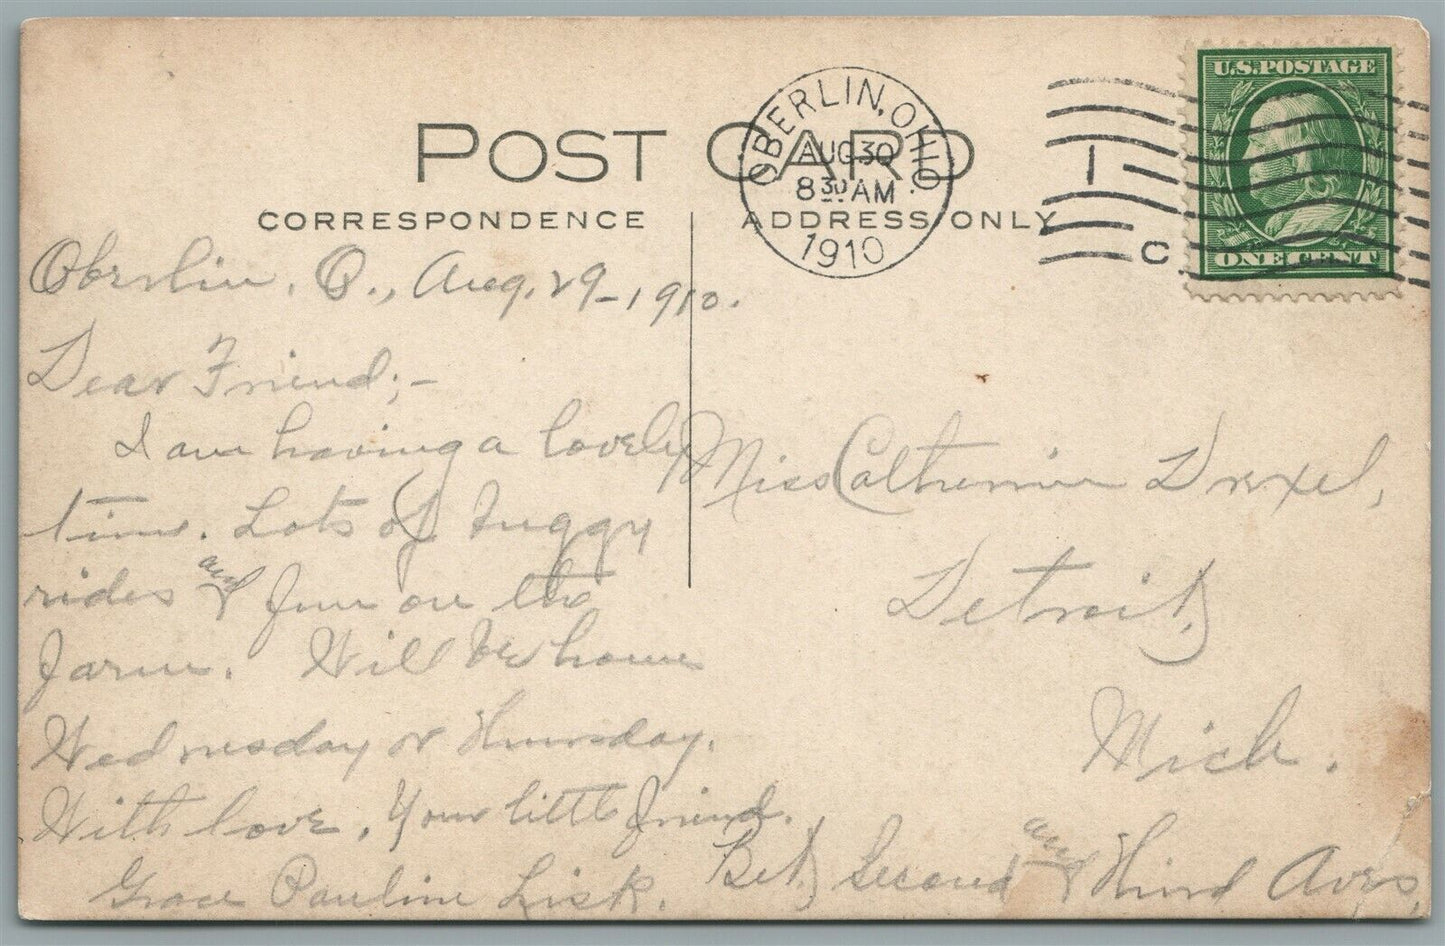 POST CARD
CORRESPONDENCE
ADDRESS ONLY
OBERLIN, OHIO
AUG 30
8 30 AM
1910
1
C
U.S. POSTAGE
ONE CENT
Oberlin, O., Aug. 29-1910.
Dear Friend;-
I am having a lovely
time. Lots of buggy
rides and fun on the
farm. Will be home
Wednesday or Thursday.
With love, Your little friend.
Grace Pauline Lisk.
Miss Catherine Drexel,
Detroit,
Mich.
Bet. Second and Third Aves,